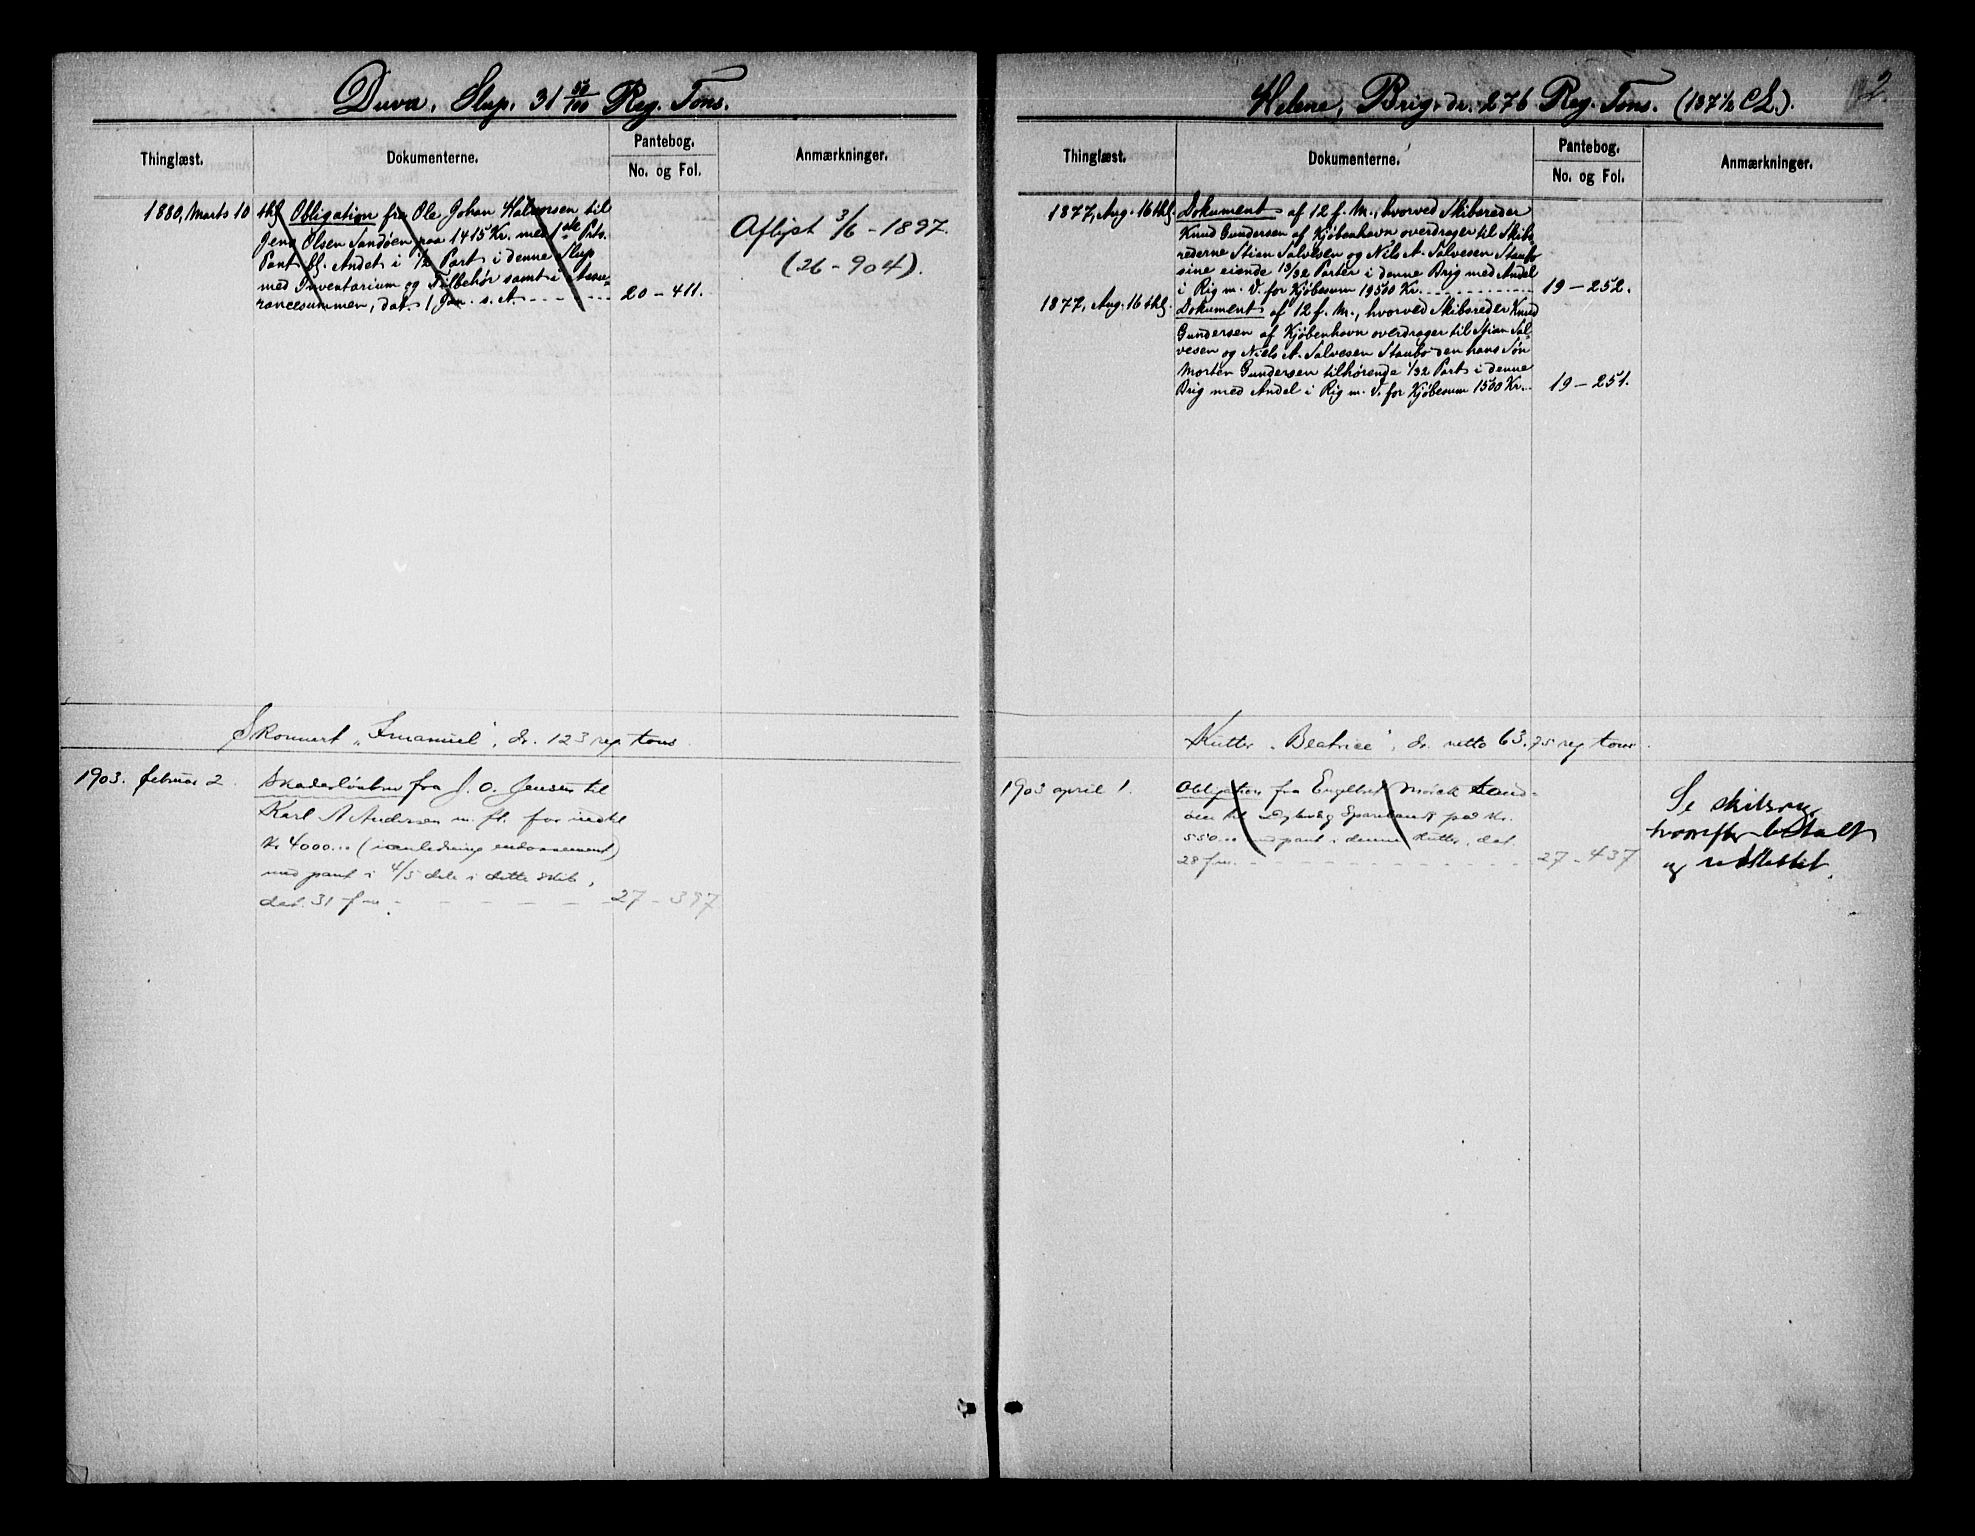 Duva, Slup. 31 50/100 Reg. Tons.
Thinglæst.
Dokumenterne.
Pantebog.
No. og Fol.
Anmærkninger.
1880, Marts 10 thl. Obligation fra Ole Johan Halvorsen til
Jens Olsen Sandøen paa 1415 Kr. med 1ste Prts.
Pant bl. Andet i 1/2 Part i denne Slup
med Inventarium og Tilbehør samt i Assu-
rancesummen, dat. 1 Jan. s. A. 20 - 411.
Aflyst 3/6 - 1897.
(26 - 904).
Skonnert "Imanuel", dr. 123 reg tons.
1903. februar 2. Skadesløsbrev fra J. O. Jensen til
Karl A Andersen m. fl. for indtil
Kr 4000... (i anledning endossement)
med pant i 4/5 dele i dette skib,
dat. 31 f m. 27 - 397
2.
Helene, Brig, dr. 276 Reg. Tons. (137 1/2 CL).
Thinglæst.
Dokumenterne.
Pantebog.
No. og Fol.
Anmærkninger.
1877, Aug. 16 thl. Dokument af 12 f. M., hvorved Skibsreder
Knud Gundersen af Kjøbenhavn overdrager til Skibs-
rederne Stian Salvesen og Nils A. Salvesen Staubø
sine eiende 13/32 Parter i denne Brig med Andel
i Rig m. V. for Kjøbesum 19500 Kr. 19 - 252.
1877, Aug. 16 thl. Dokument af 12 f. M., hvorved Skibsreder Knud
Gundersen af Kjøbenhavn overdrager til Stian Sal-
vesen og Niels A. Salvesen Staubø den hans Søn
Morten Gundersen tilhørende 1/32 Part i denne
Brig med Andel i Rig m. V. for Kjøbesum 1500 Kr. 19 - 251.
Kutter "Beatrice", dr. netto 63,75 reg tons.
1903 april 1. Obligation fra Engelbret Mørch Sand-
øen til Sparebank paa Kr.
550... med pant i denne Kutter, dat.
28 f m. 27 - 437
Se skibsreg.
hvorefter betalt
og udslettet.